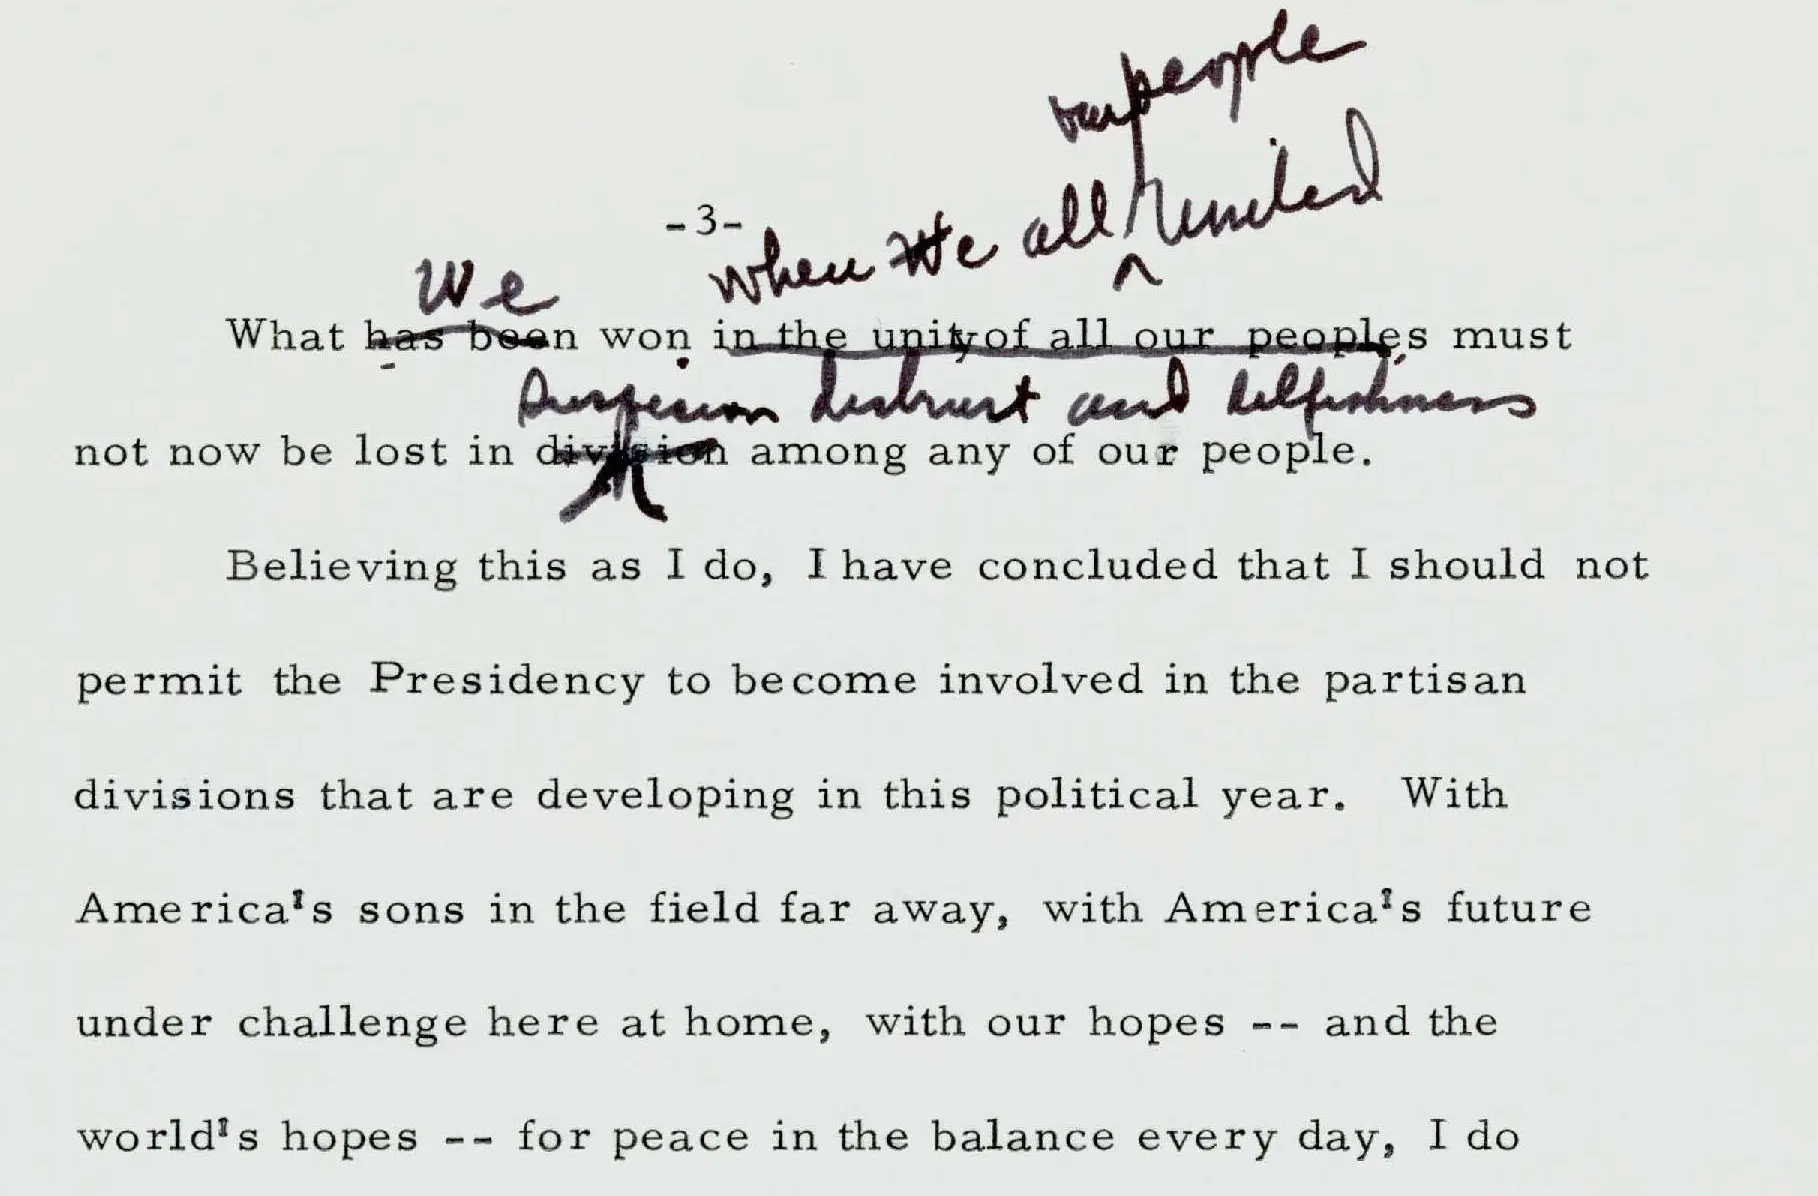 our people
-3-
when we all united
We
What has been won in the unity of all our peoples must
suspicion distrust and selfishness
not now be lost in division among any of our people.
Believing this as I do, I have concluded that I should not
permit the Presidency to become involved in the partisan
divisions that are developing in this political year. With
America's sons in the field far away, with America's future
under challenge here at home, with our hopes -- and the
world's hopes -- for peace in the balance every day, I do